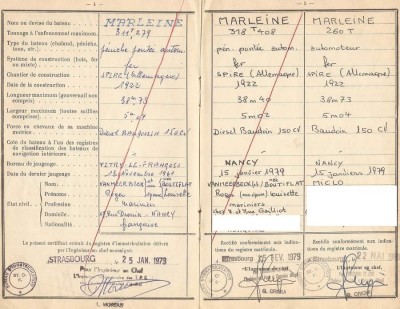 Nom ou devise du bateau : MARLEINE
Tonnage à l'enfoncement maximum. 311t 279
Type du bateau (chaland, péniche, toue, etc.)
péniche pontée autom.
Système de construction (bois, fer ou mixte)
fer
Chantier de construction SPIRE (Allemagne)
Date de la construction 1922
Longueur maximum (gouvernail non compris) 38m 73
Largeur maximum (bouts saillies comprises) 5m 02
Force en chevaux de la machine motrice
Diesel Baudouin 150 CV
Cote du bateau à l'un des registres de classification des bateaux de navigation intérieure
Bureau du jaugeage VITRY-LE-FRANÇOIS
Date du dernier jaugeage 15 Novembre 1961
Nom
Prénoms
Profession
Domicile
Nationalité
État civil
Roger
marinier
NANCY
française
Le présent certificat extrait du registre d'immatriculation délivré par l'Ingénieur en chef soussigné.
STRASBOURG le 25 JAN. 1973
Pour l'Ingénieur en Chef
MARLEINE
318T 408
pén. pontée autom.
fer
SPIRE (Allemagne)
1922
38m 40
5m 02
Diesel Baudoin 150 CV
NANCY
15 janvier 1979
mariniers
Rectifié conformément aux indications du registre matricule.
FEV. 1979
L'Ingénieur en chef,
MARLEINE
260 T
automoteur
fer
SPIRE (Allemagne)
1922
38m73
5m04
Baudoin 150 CV
NANCY
15 janvier 1979
MICLO
Rectifié conformément aux indications du registre matricule.
22 MAI
L'Ingénieur en chef,